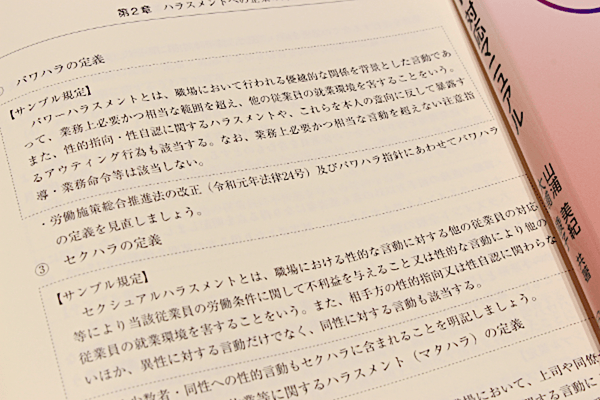 第2章 ハラスメントへの企業
パワハラの定義
【サンプル規定】
パワーハラスメントとは、職場において行われる優越的な関係を背景とした言動であ
って、業務上必要かつ相当な範囲を超え、他の従業員の就業環境を害することをいう。
また、性的指向・性自認に関するハラスメントや、これらを本人の意向に反して暴露す
るアウティング行為も該当する。なお、業務上必要かつ相当な言動を超えない注意指
導・業務命令等は該当しない。
・労働施策総合推進法の改正(令和元年法律24号)及びパワハラ指針にあわせてパワハラ
の定義を見直しましょう。
③ セクハラの定義
【サンプル規定】
セクシュアルハラスメントとは、職場における性的な言動に対する他の従業員の対応
等により当該従業員の労働条件に関して不利益を与えること又は性的な言動により他の
従業員の就業環境を害することをいう。また、相手方の性的指向又は性自認に関わらな
いほか、異性に対する言動だけでなく、同性に対する言動も該当する。
少数者・同性への性的言動もセクハラに含まれることを明記しましょう。
業等に関するハラスメント(マタハラ)の定義
場において、上司や同僚
対応マニュアル
山浦 美紀